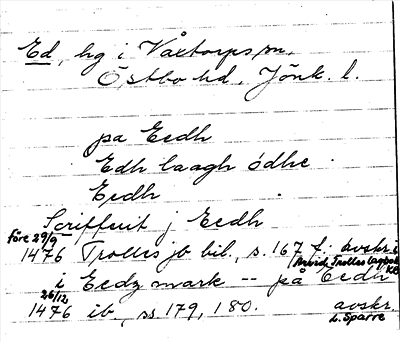 Ed, hg i Våxtorps sn,
Östbo hd, Jönk. l.
pa Eedh
Edh laagh ödhe
Eedh
Scriffuit j Eedh
före 29/9
1476 Trolles jb bil., s. 167 f. avskr. i
Arvid Trolles lagbok
KB
i Eedz mark -- på Eedh
26/12
1476 ib., ss. 179, 180. avskr.
L. Sparre